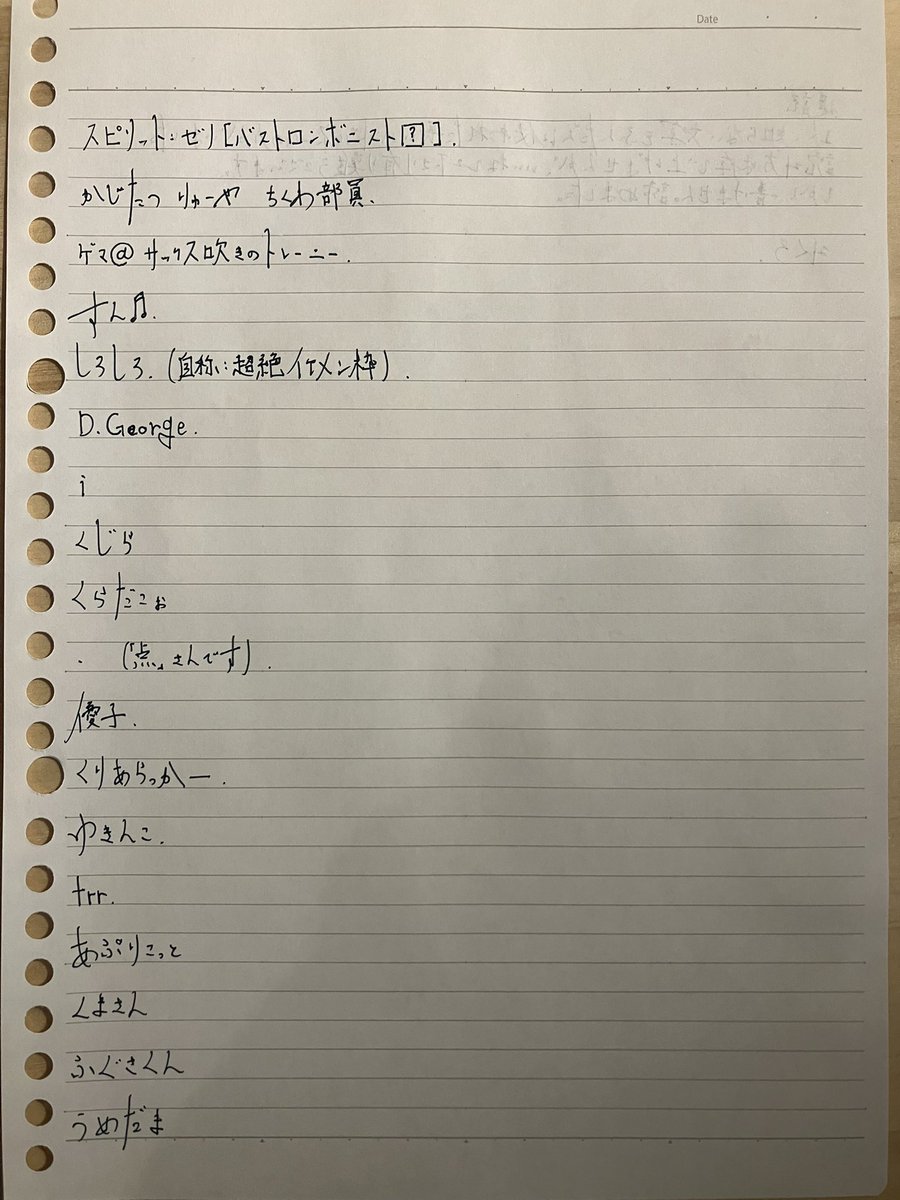 Date
スピリット:ゼリ[バストロンボニスト?].
かじたつ りゅーや ちくわ部員.
ゲマ@サックス吹きのトレーニー.
すん♬.
しろしろ.(自称:超絶イケメン枠).
D.George.
i
くじら
くらだこぉ
. (「点」さんです).
優子.
くりあらっかー.
ゆきんこ.
trr.
あぷりこっと
くまさん
ふぐさくん
うめだま